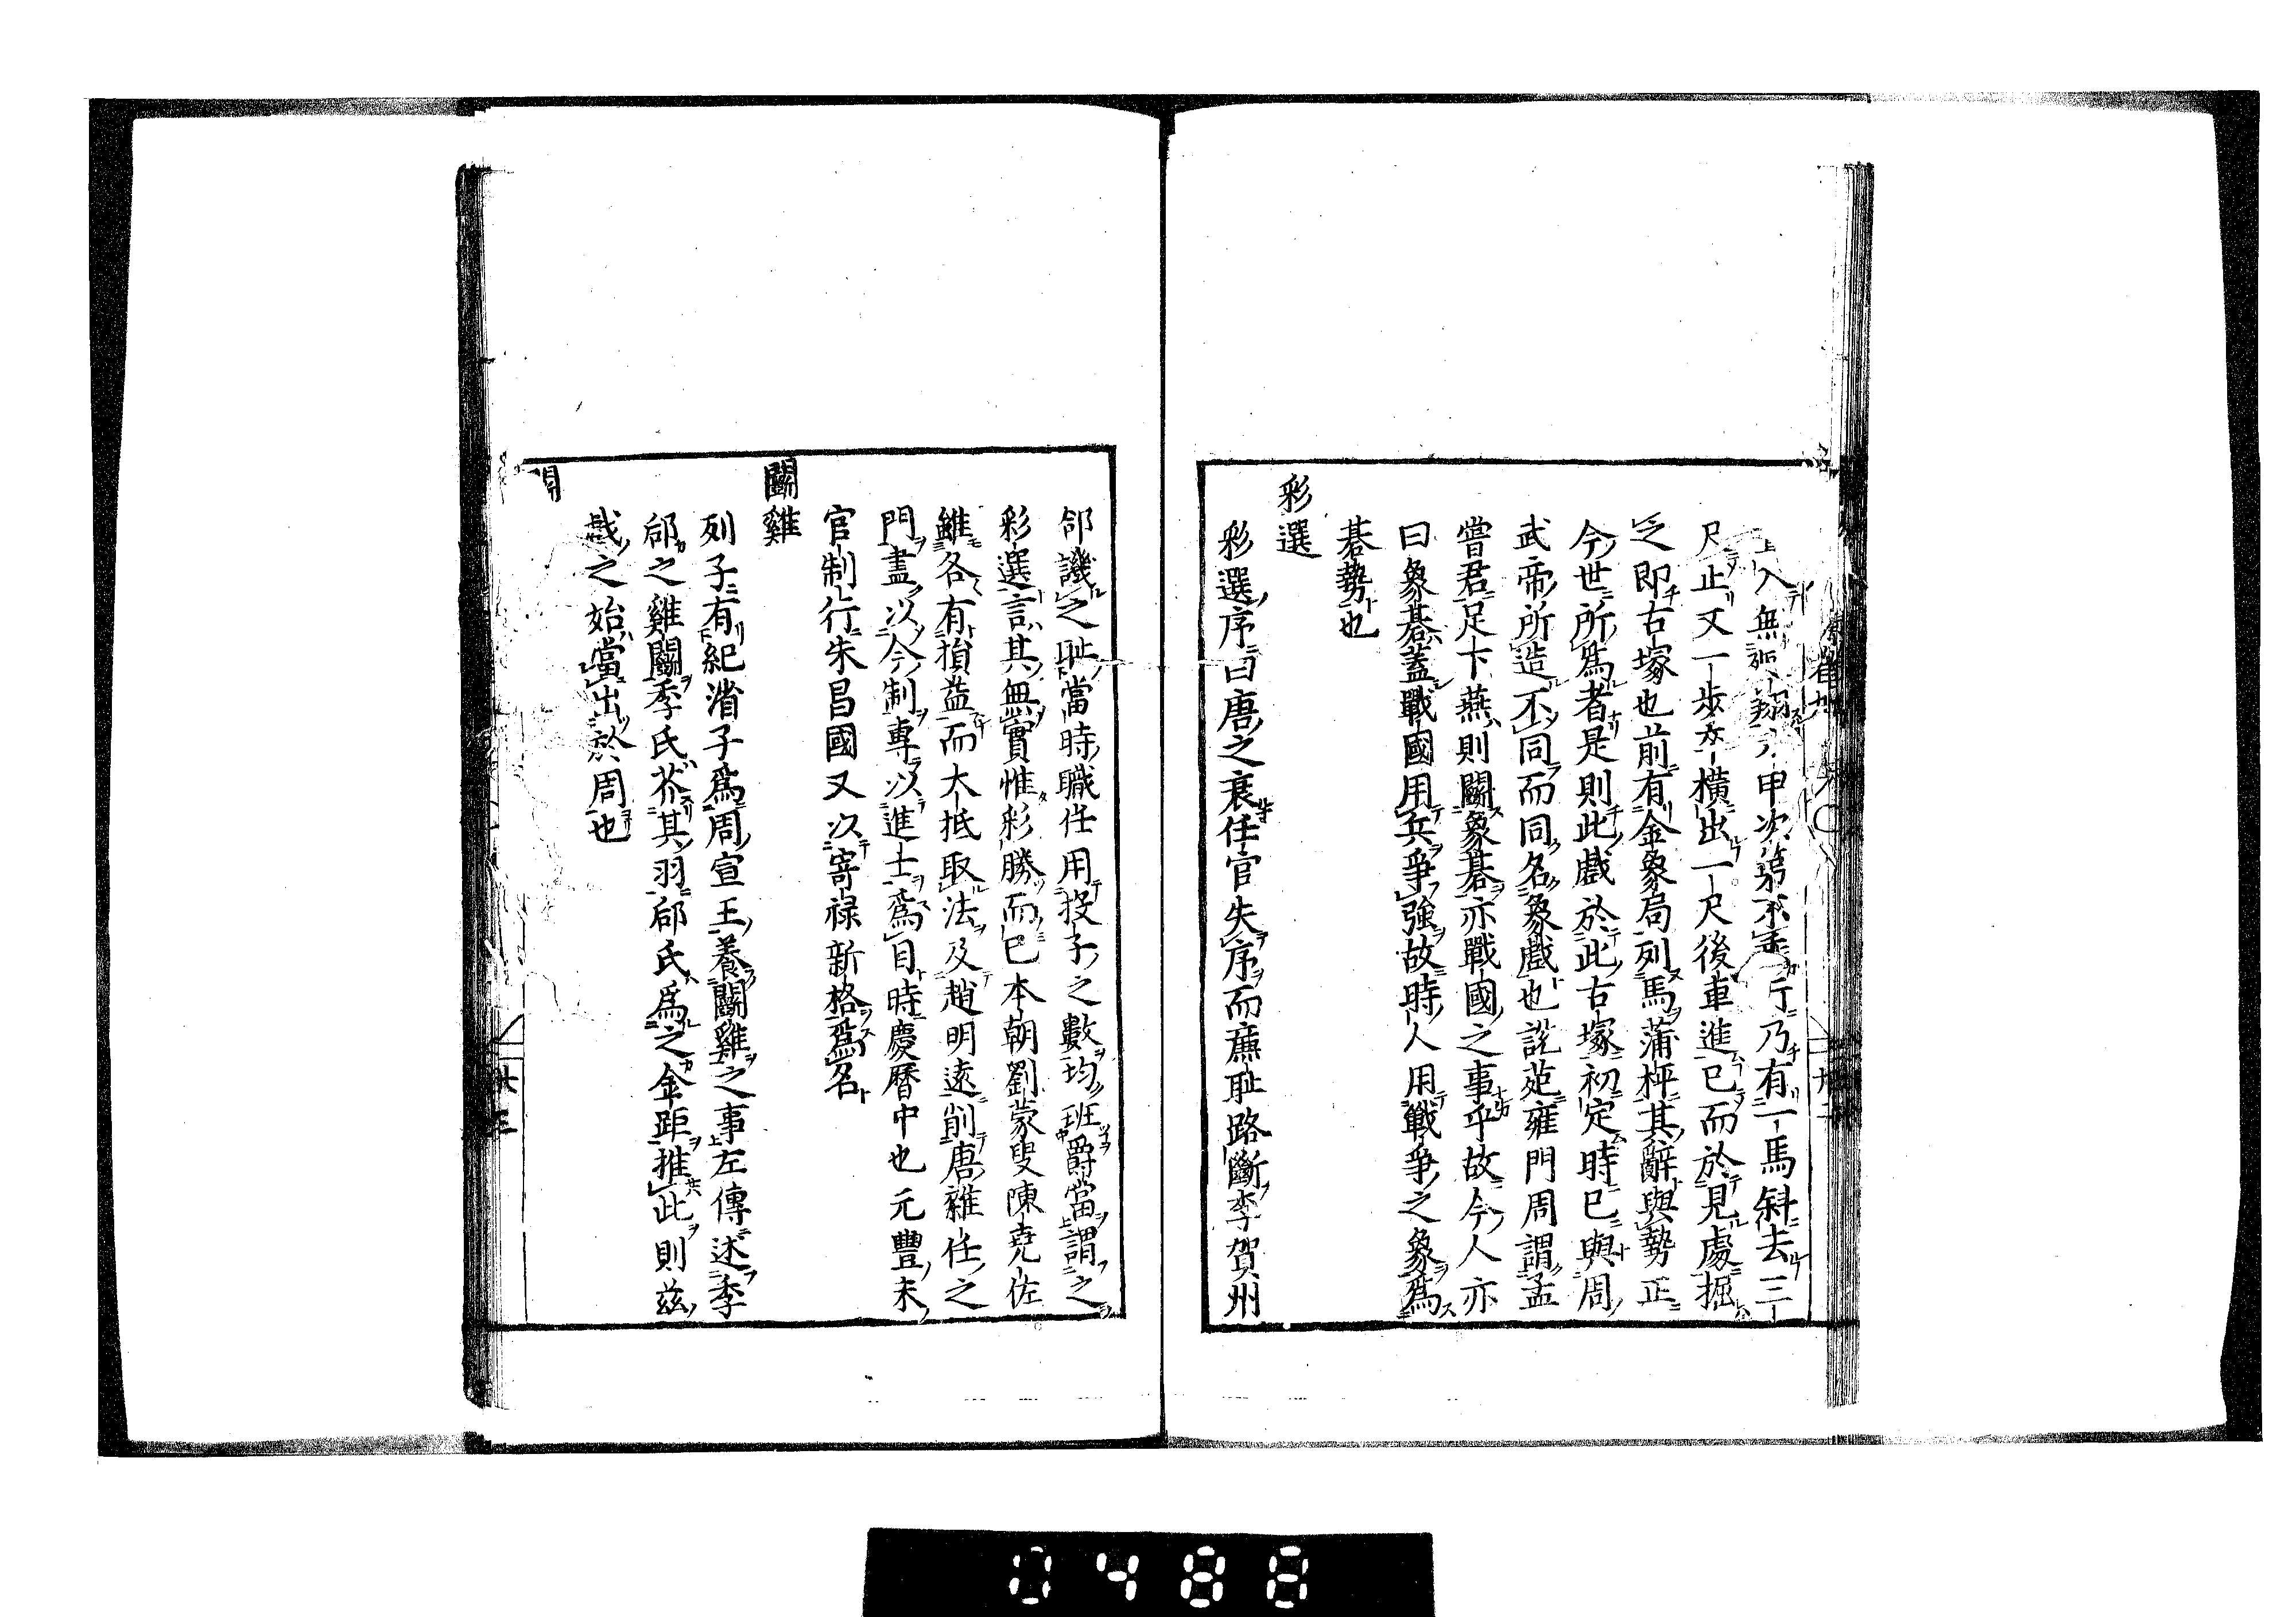 入無 甲次第不乖行乃有一馬斜去三
尺止又一步卒横出一尺後車進已而於見處掘
之即古塚也前有金象局列馬蒲枰其辭與勢正
今世所爲者是則此戲於此古塚初定時已與周
武帝所造不同而同名象戲也説苑雍門周謂孟
嘗君足下燕則鬭象棊亦戰國之事乎故今人亦
曰象棊蓋戰國用兵爭強故時人用戰爭之象爲
棊勢也
彩選
彩選序曰唐之衰任官失序而廉耻路斷李賀州
郃譏之耻當時職任用投子之數均班爵當謂之
彩選言其無實惟彩勝而已本朝劉蒙叟陳堯佐
雖各有損益而大抵取法及趙明遠削唐雜任之
門盡以今制專以進士爲目時慶曆中也元豐末
官制行朱昌國又以寄禄新格爲名
鬭雞
列子有紀渻子爲周宣王養鬭雞之事左傳述季
郈之雞鬭季氏芥其羽郈氏爲之金距推此則茲
戲之始當出於周也
0488